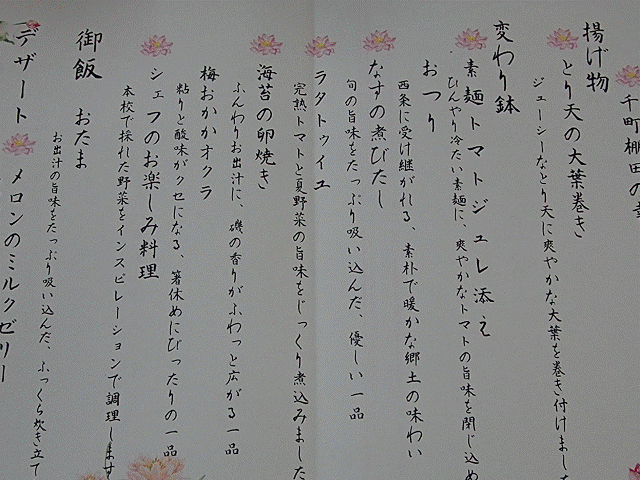 千町棚田の
揚げ物
とり天の大葉巻き
ジューシーなとり天に爽やかな大葉を巻き付けまし
変わり鉢
素麺トマトジュレ添え
ひんやり冷たい素麺に、爽やかなトマトの旨味を閉じ込め
おつり
西条に受け継がれる、素朴で暖かな郷土の味わい
なすの煮びたし
旬の旨味をたっぷり吸い込んだ、優しい一品
ラタトゥイユ
完熟トマトと夏野菜の旨味をじっくり煮込みました
海苔の卵焼き
ふんわりお出汁に、磯の香りがふわっと広がる一品
梅おかかオクラ
粘りと酸味がクセになる、箸休めにぴったりの一品
シェフのお楽しみ料理
本校で採れた野菜をインスピレーションで調理します
御飯 おたま
お出汁の旨味をたっぷり吸い込んだ、ふっくら炊き立て
デザート メロンのミルクゼリー